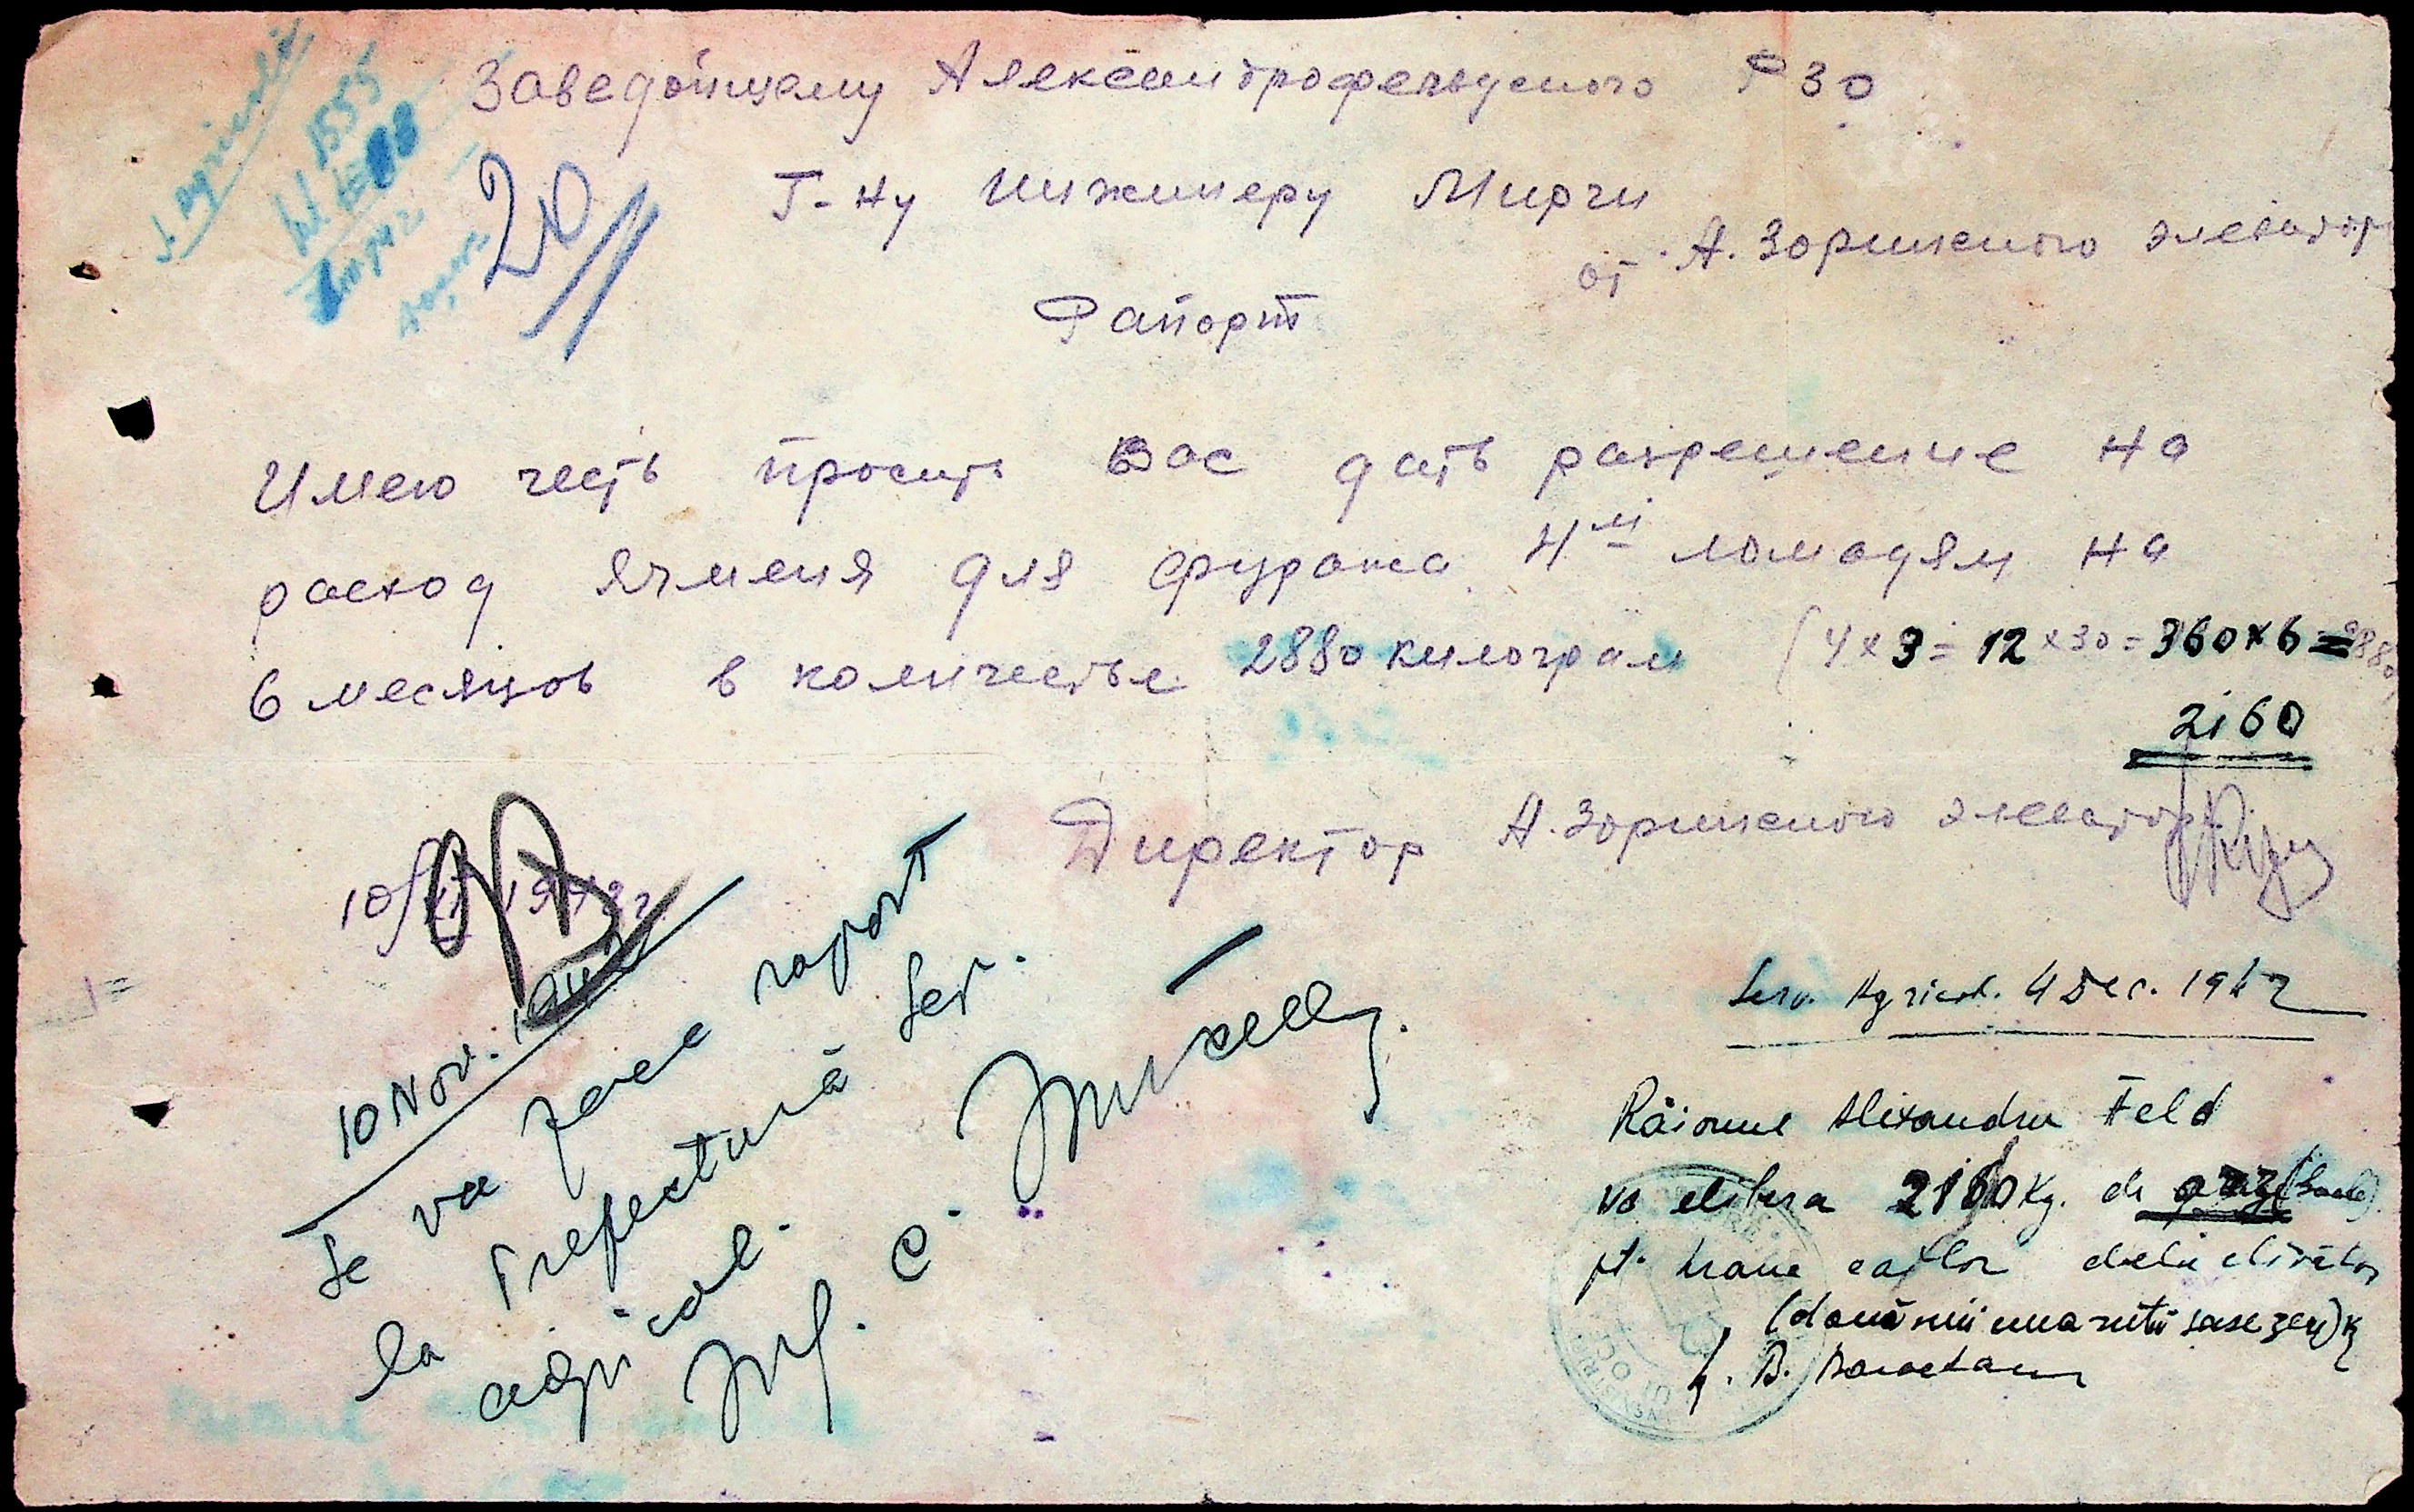 Заведующему Александрофельдского РЗО
Г-ну Инжинеру Мирчи
от А. Зоринского элеватор
20
Рапорт
Имею честь просить Вас дать разрешение на
расход ячменя для фуража 4м лошадям на
6 месяцов в количестве 2880 килограм (4x3=12x30=360x6=2880
2160
Директор А. Зоринского элеватор
10 Nov. 1942
Se va face raport
la Prefectură Ser.
agricol.
Serv. Agricol. 4 Dec. 1942
Raionul Alexandru Feld
va elibera 2160 Kg. de orz
pt. hrana cailor dela elivator
(două mii una sută sase zeci) Kg